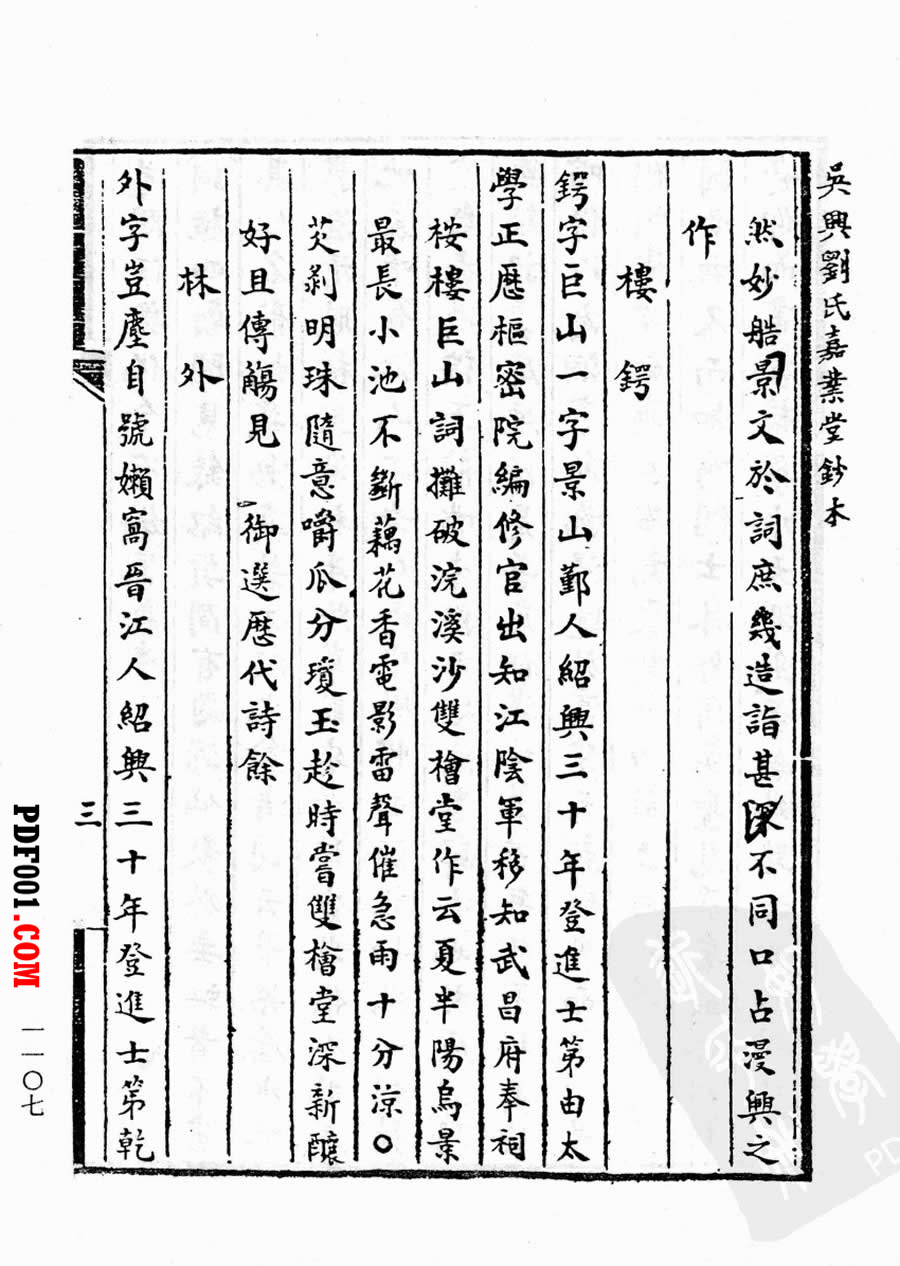 吳興劉氏嘉業堂鈔本
然妙皓景文於詞庶幾造詣甚深不同口占漫興之
作
樓鍔
鍔字巨山一字景山鄞人紹興三十年登進士第由太
學正歷樞密院編修官出知江陰軍移知武昌府奉祠
桉樓巨山詞攤破浣溪沙雙檜堂作云夏半陽烏景
最長小池不斷藕花香電影雷聲催急雨十分涼○
芡剥明珠隨意嚼瓜分瓊玉趁時嘗雙檜堂深新釀
好且傳觴見 御選歷代詩餘
林外
外字豈塵自號嬾窩晉江人紹興三十年登進士第乾
三
一一〇七
PDF001.COM